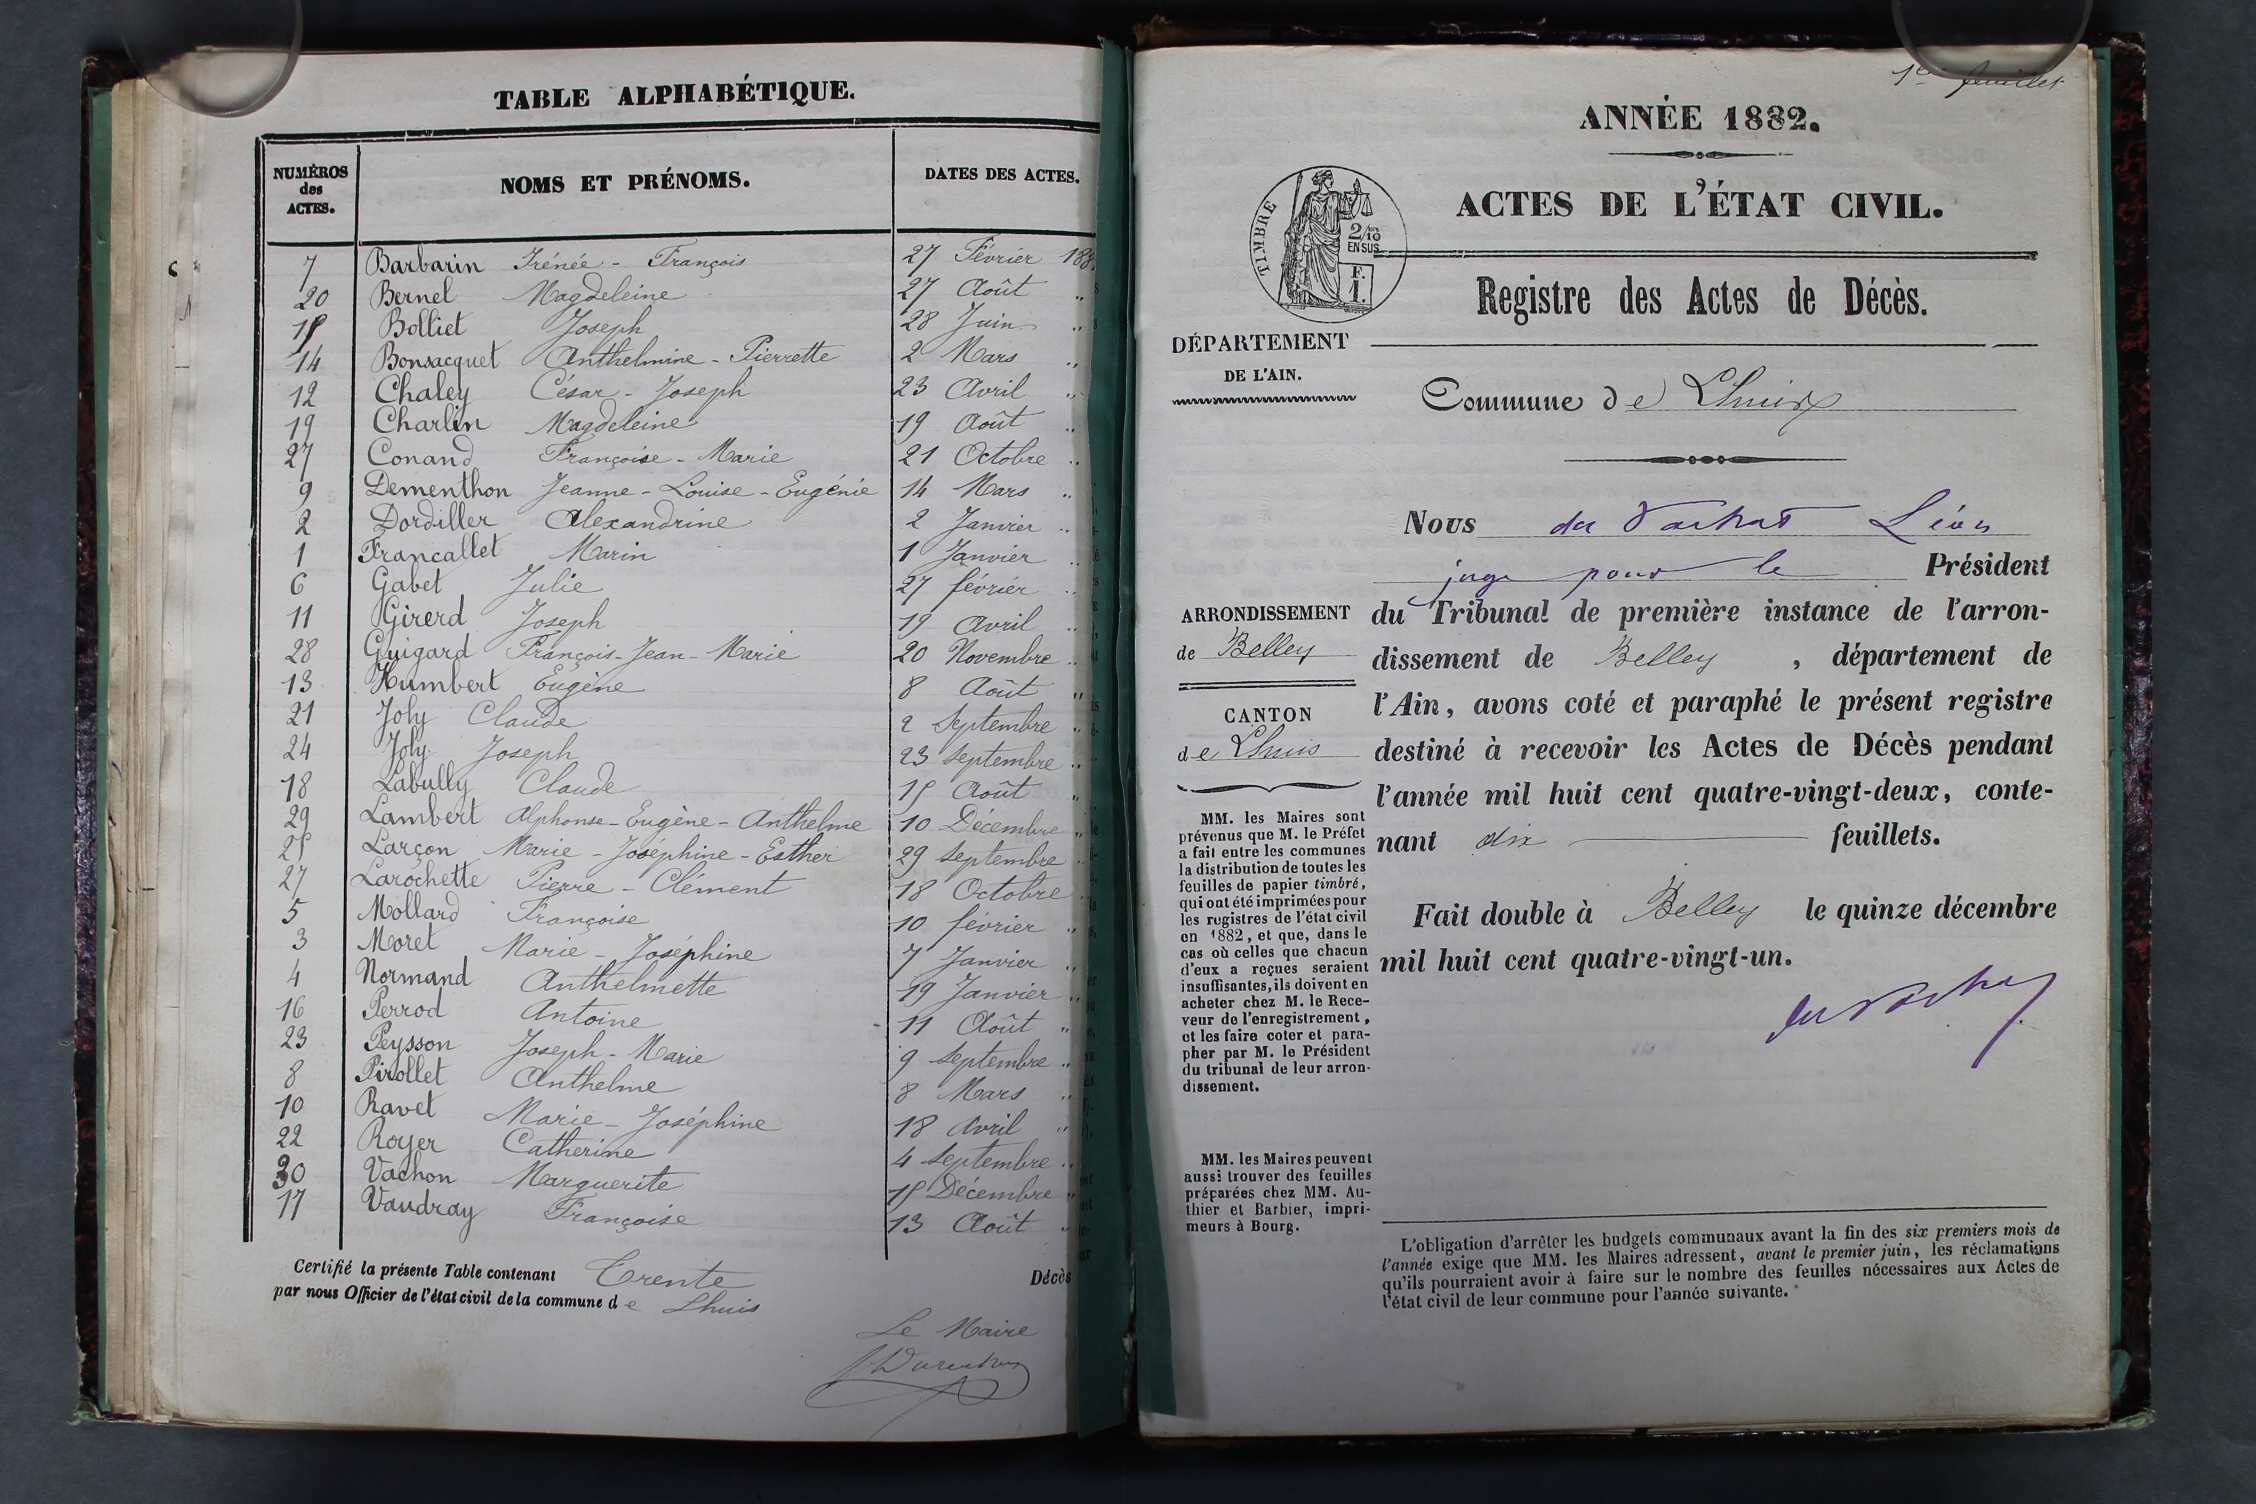 TABLE ALPHABÉTIQUE.
NUMÉROS des ACTES. NOMS ET PRÉNOMS. DATES DES ACTES.
7 Barbarin Irénée - François 27 Février 188
20 Bernel Magdeleine 27 Août "
15 Bolliet Joseph 28 Juin "
14 Bonsacquet Anthelmine - Pierrette 2 Mars "
12 Chaley César - Joseph 23 Avril "
19 Charlin Magdeleine 19 Août "
27 Conand Françoise - Marie 21 Octobre "
9 Dementhon Jeanne - Louise - Eugénie 14 Mars "
2 Dordiller Alexandrine 2 Janvier "
1 Francallet Marin 1 Janvier "
6 Gabet Julie 27 février "
11 Girerd Joseph 19 Avril "
28 Guigard François - Jean - Marie 20 Novembre "
13 Humbert Eugène 8 Août "
21 Joly Claude 2 Septembre "
24 Joly Joseph 23 Septembre "
18 Labully Claude 15 Août "
29 Lambert Alphonse - Eugène - Anthelme 10 Décembre "
25 Larçon Marie - Joséphine - Esther 29 Septembre "
27 Larochette Pierre - Clément 18 Octobre "
5 Mollard Françoise 10 février "
3 Moret Marie - Joséphine 7 Janvier "
4 Normand Anthelmette 19 Janvier "
16 Perrod Antoine 11 Août "
23 Peysson Joseph - Marie 9 Septembre "
8 Pirollet Anthelme 8 Mars "
10 Ravet Marie - Joséphine 18 Avril "
22 Royer Catherine 4 Septembre "
30 Vachon Marguerite 15 Décembre "
17 Vaudray Françoise 13 Août "
Certifié la présente Table contenant Trente Décès
par nous Officier de l'état civil de la commune de Lhuis
Le Maire
1er feuillet
ANNÉE 1882.
ACTES DE L'ÉTAT CIVIL.
TIMBRE
2/10 EN SUS
F. 1.
Registre des Actes de Décès.
DÉPARTEMENT
DE L'AIN.
Commune de Lhuis
Nous du Vachat Léon
juge pour le Président
du Tribunal de première instance de l'arron-
dissement de Belley, département de
l'Ain, avons coté et paraphé le présent registre
destiné à recevoir les Actes de Décès pendant
l'année mil huit cent quatre-vingt-deux, conte-
nant dix feuillets.
Fait double à Belley le quinze décembre
mil huit cent quatre-vingt-un.
du Vachat
ARRONDISSEMENT
de Belley
CANTON
de Lhuis
MM. les Maires sont
prévenus que M. le Préfet
a fait entre les communes
la distribution de toutes les
feuilles de papier timbré,
qui ont été imprimées pour
les registres de l'état civil
en 1882, et que, dans le
cas où celles que chacun
d'eux a reçues seraient
insuffisantes, ils doivent en
acheter chez M. le Rece-
veur de l'enregistrement,
et les faire coter et para-
pher par M. le Président
du tribunal de leur arron-
dissement.
MM. les Maires peuvent
aussi trouver des feuilles
préparées chez MM. Au-
thier et Barbier, impri-
meurs à Bourg.
L'obligation d'arrêter les budgets communaux avant la fin des six premiers mois de
l'année exige que MM. les Maires adressent, avant le premier juin, les réclamations
qu'ils pourraient avoir à faire sur le nombre des feuilles nécessaires aux Actes de
l'état civil de leur commune pour l'année suivante.